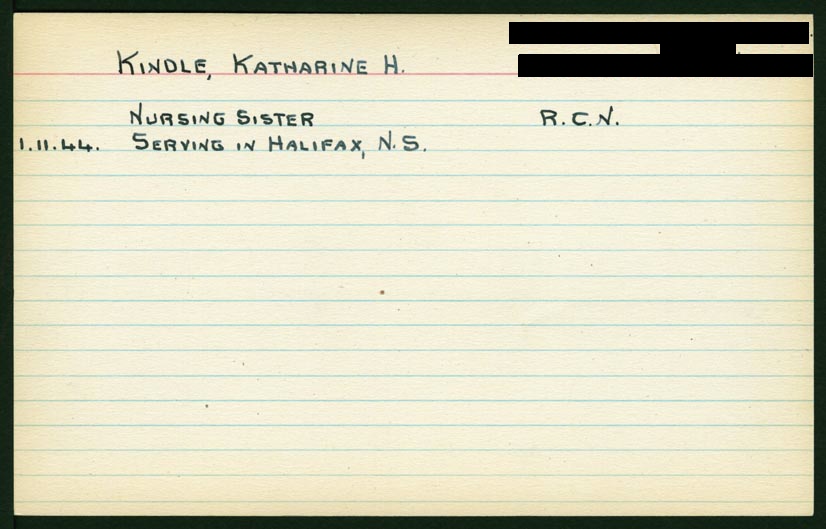 KINDLE, KATHARINE H.
NURSING SISTER R.C.N.
1.11.44. SERVING IN HALIFAX, N.S.